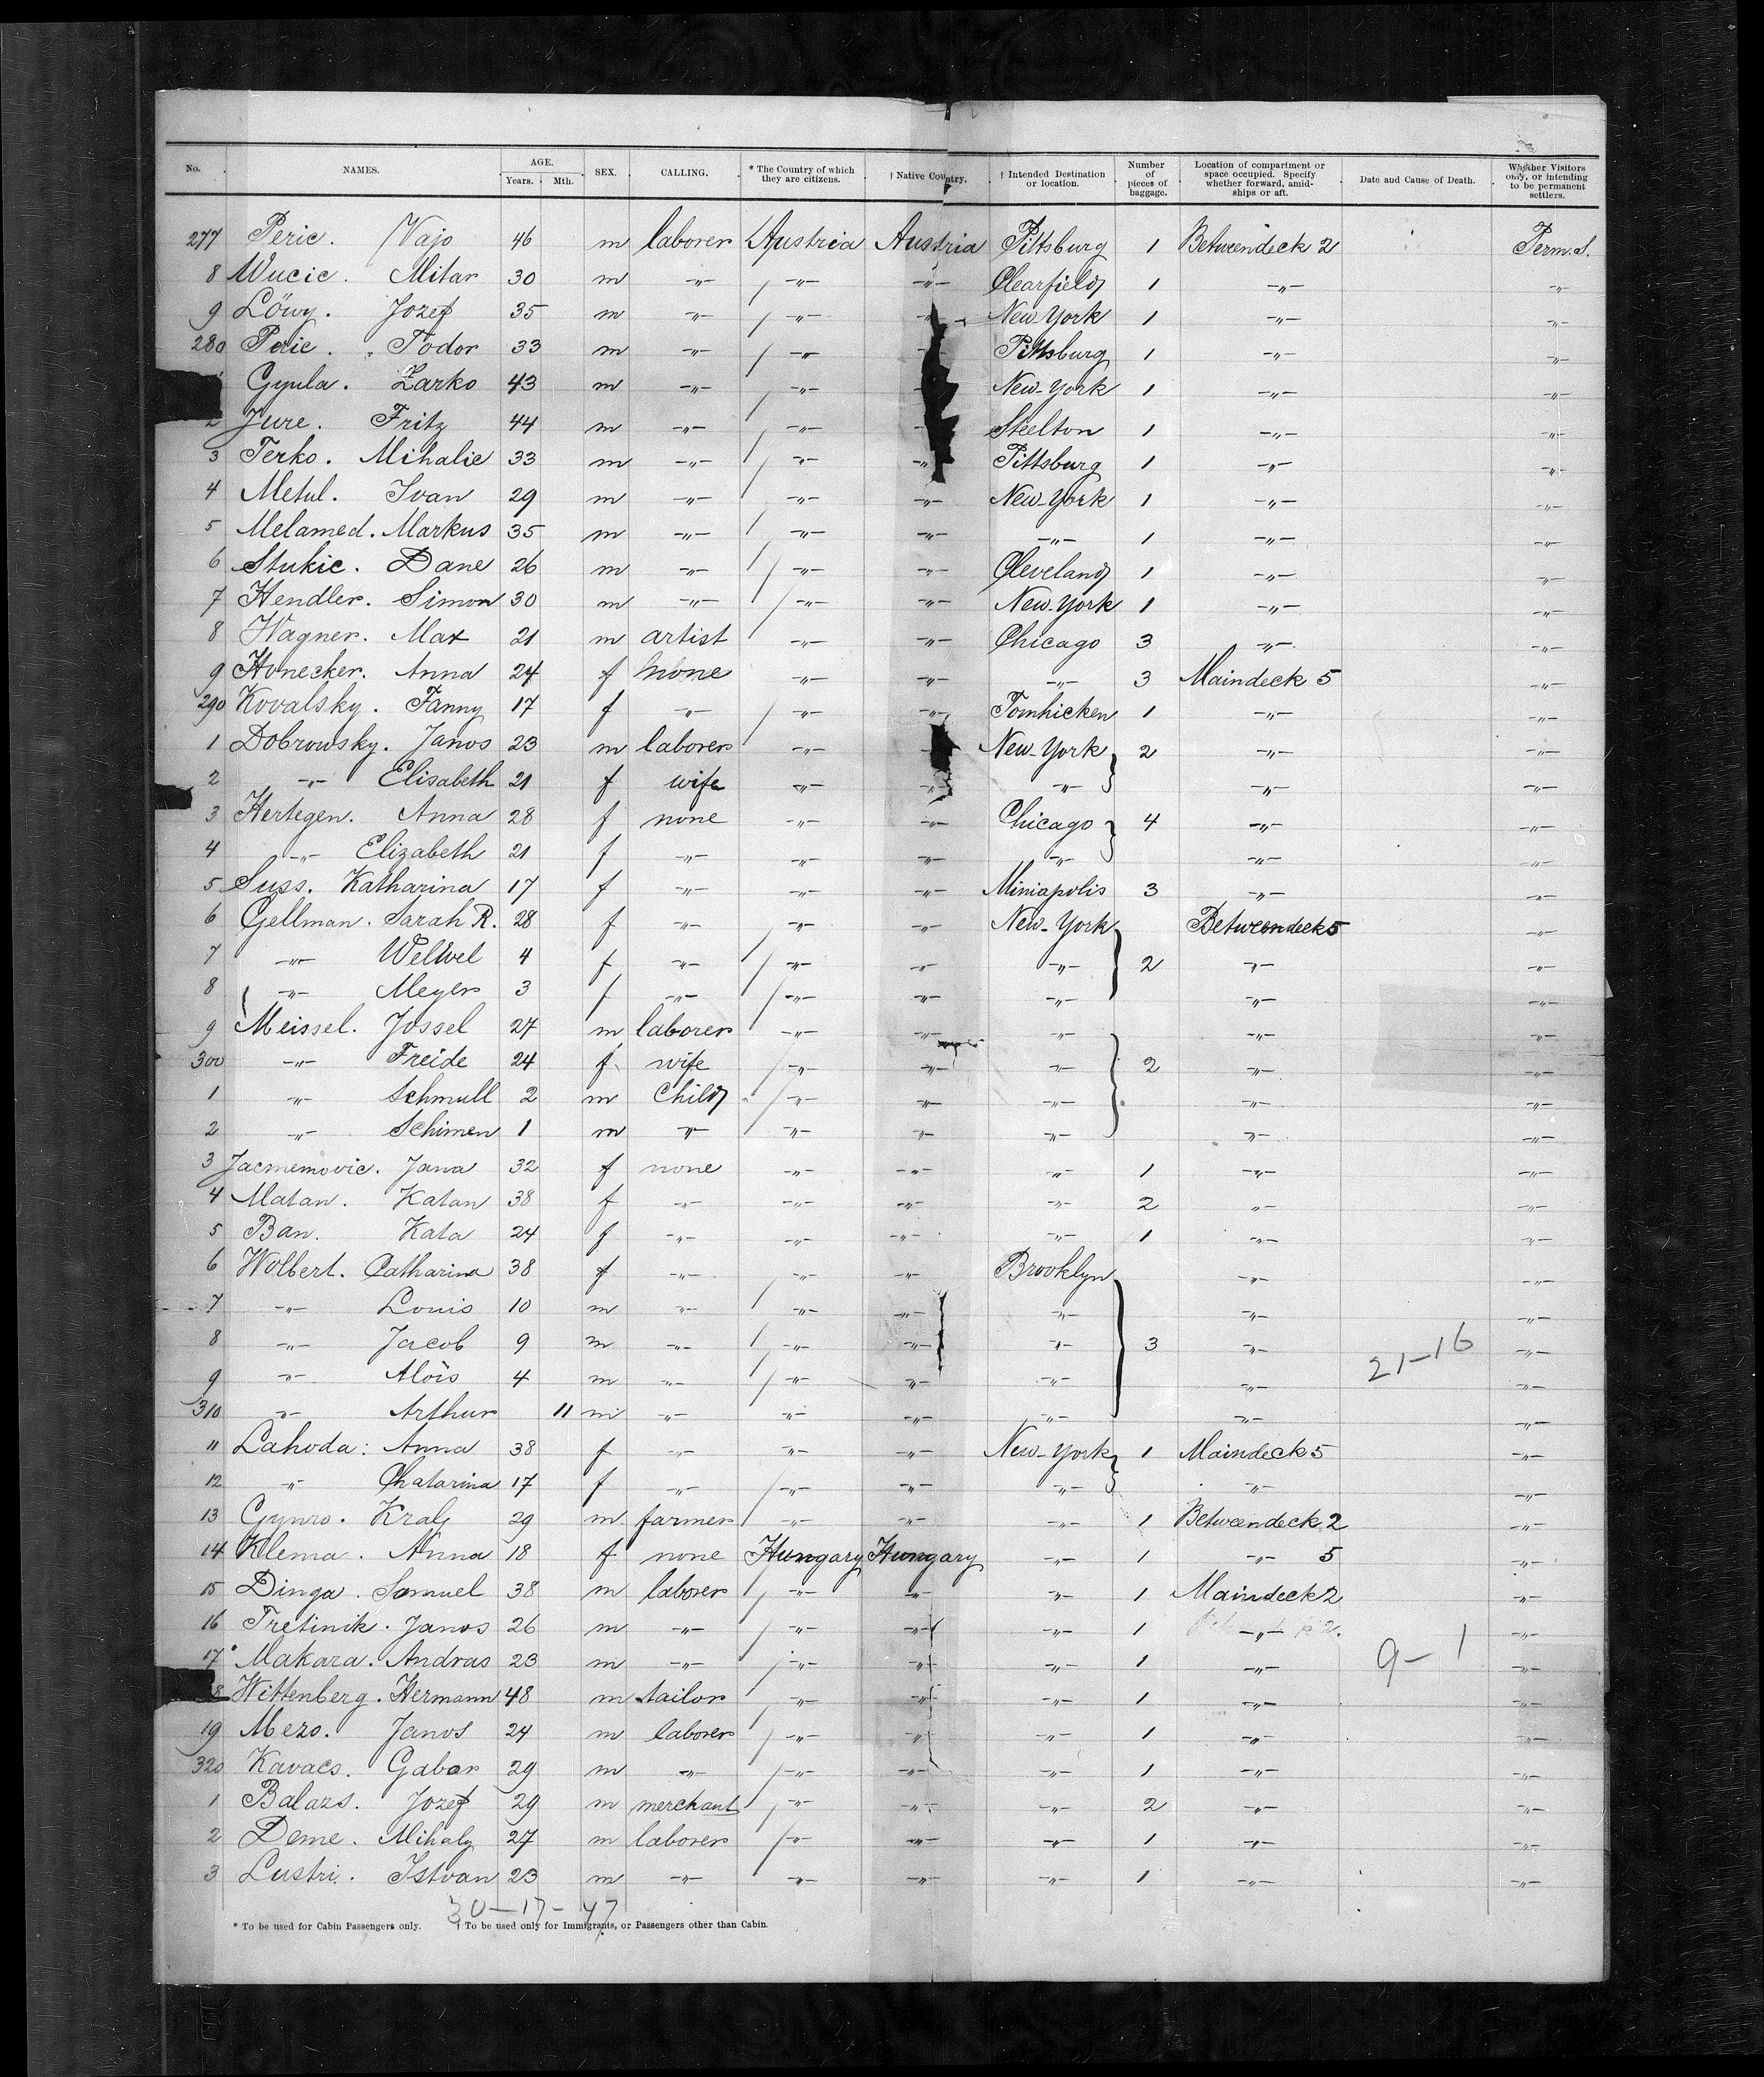 No. NAMES. AGE. Years. Mth. SEX. CALLING. * The Country of which they are citizens. † Native Country. † Intended Destination or location. Number of pieces of baggage. Location of compartment or space occupied. Specify whether forward, amidships or aft. Date and Cause of Death. Whether Visitors only, or intending to be permanent settlers.
277 Peric. Vajo 46 m laborer Austria Austria Pittsburg 1 Betweendeck 2 Perm. S.
8 Wucic. Mitar 30 m -„- -„- -„- Clearfield 1 -„- -„-
9 Löwy. Jozef 35 m -„- -„- -„- New York 1 -„- -„-
280 Peric. Todor 33 m -„- -„- Pittsburg 1 -„- -„-
Gyula. Zarko 43 m -„- -„- New-York 1 -„- -„-
2 Jure. Fritz 44 m -„- -„- Steelton 1 -„- -„-
3 Terko. Mihalic 33 m -„- -„- -„- Pittsburg 1 -„- -„-
4 Metul. Ivan 29 m -„- -„- -„- New-York 1 -„- -„-
5 Melamed. Markus 35 m -„- -„- -„- -„- 1 -„- -„-
6 Stukic. Dane 26 m -„- -„- -„- Cleveland 1 -„- -„-
7 Hendler. Simon 30 m -„- -„- -„- New-York 1 -„- -„-
8 Wagner. Max 21 m artist -„- -„- Chicago 3 -„- -„-
9 Honecker. Anna 24 f none -„- -„- -„- 3 Maindeck 5 -„-
290 Kovalsky. Fanny 17 f -„- -„- -„- Tomhicken 1 -„- -„-
1 Dobrowsky. Janos 23 m laborer -„- New-York 2 -„- -„-
2 -„- Elisabeth 21 f wife -„- -„- -„- -„- -„-
3 Hertegen. Anna 28 f none -„- -„- Chicago 4 -„- -„-
4 -„- Elizabeth 21 f -„- -„- -„- -„- -„- -„-
5 Suss. Katharina 17 f -„- -„- -„- Miniapolis 3 -„- -„-
6 Gellman. Sarah R. 28 f -„- -„- -„- New-York Betweendeck 5 -„-
7 -„- Welwel 4 f -„- -„- -„- -„- 2 -„- -„-
8 -„- Meyer 3 f -„- -„- -„- -„- -„- -„-
9 Meissel. Jossel 27 m laborer -„- -„- -„- -„- -„-
300 -„- Freide 24 f wife -„- -„- -„- 2 -„- -„-
1 -„- Schmull 2 m Child -„- -„- -„- -„- -„-
2 -„- Schimen 1 m -„- -„- -„- -„- -„- -„-
3 Jacmemovic. Jana 32 f none -„- -„- -„- 1 -„- -„-
4 Matan. Katan 38 f -„- -„- -„- -„- 2 -„- -„-
5 Ban. Kata 24 f -„- -„- -„- -„- 1 -„- -„-
6 Wolbert. Catharina 38 f -„- -„- -„- Brooklyn -„- -„-
7 -„- Louis 10 m -„- -„- -„- -„- -„- -„-
8 -„- Jacob 9 m -„- -„- -„- -„- 3 -„- 21-16 -„-
9 -„- Alois 4 m -„- -„- -„- -„- -„- -„-
310 -„- Arthur 11 m -„- -„- -„- -„- -„- -„-
11 Lahoda: Anna 38 f -„- -„- -„- New-York 1 Maindeck 5 -„-
12 -„- Chatarina 17 f -„- -„- -„- -„- -„- -„-
13 Gynro. Kralj 29 m farmer -„- -„- -„- 1 Betweendeck 2 -„-
14 Klema. Anna 18 f none Hungary Hungary -„- 1 -„- 5 -„-
15 Dinga. Samuel 38 m laborer -„- -„- -„- 1 Maindeck 2 -„-
16 Tretinik. Janos 26 m -„- -„- -„- -„- 1 -„- -„-
17 Makara. Andras 23 m -„- -„- -„- -„- 1 -„- 9-1 -„-
8 Wittenberg. Hermann 48 m tailor -„- -„- -„- 1 -„- -„-
19 Mezo. Janos 24 m laborer -„- -„- -„- 1 -„- -„-
320 Kavacs. Gabor 29 m -„- -„- -„- -„- 1 -„- -„-
1 Balazs. Jozef 29 m merchant -„- -„- -„- 2 -„- -„-
2 Deme. Mihaly 27 m laborer -„- -„- -„- 1 -„- -„-
3 Lustri. Istvan 23 m -„- -„- -„- -„- 1 -„- -„-
30-17-47
* To be used for Cabin Passengers only. † To be used only for Immigrants, or Passengers other than Cabin.